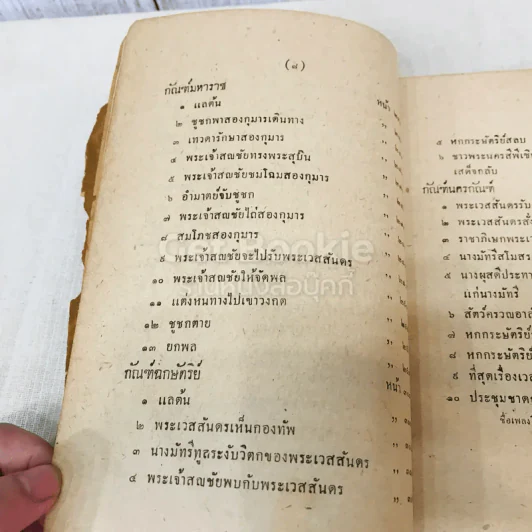 (๘)
กัณฑ์มหาราช
หน้า
๑ แลต้น
๒ ชูชกพาสองกุมารเดินทาง
๓ เทวดารักษาสองกุมาร
๔ พระเจ้าสญชัยทรงพระสุบิน
๕ พระเจ้าสญชัยชมโฉมสองกุมาร
๖ อำมาตย์ขับชูชก
๗ พระเจ้าสญชัยไถ่สองกุมาร
๘ สมโภชสองกุมาร
๙ พระเจ้าสญชัยจะไปรับพระเวสสันดร
๑๐ พระเจ้าสญชัยให้จัดพล
๑๑ แต่งหนทางไปเขาวงกต
๑๒ ชูชกตาย
๑๓ ยกพล
กัณฑ์ฉกษัตริย์
หน้า
๑ แลต้น
๒ พระเวสสันดรเห็นกองทัพ
๓ นางมัทรีทูลระงับวิตกของพระเวสสันดร
๔ พระเจ้าสญชัยพบกับพระเวสสันดร
๕ หกกระษัตริย์สลบ
๖ ชาวพระนครสีพีเชิ
เสด็จกลับ
กัณฑ์นครกัณฑ์
๑ พระเวสสันดรรับ
๒ พระเวสสันดรสั่ง
๓ ราชาภิเษกพระเว
๔ นางมัทรีสโมสร
๕ นางผุสดีประทา
แก่นางมัทรี
๖ สัตว์ครวญอาลั
๗ หกกระษัตริย์
๘ หกกระษัตริย์
๙ ที่สุดเรื่องเวส
๑๐ ประชุมชาดก
ชื่อเพลง
Get Bookie
ร้านหนังสือบุ๊คกี้